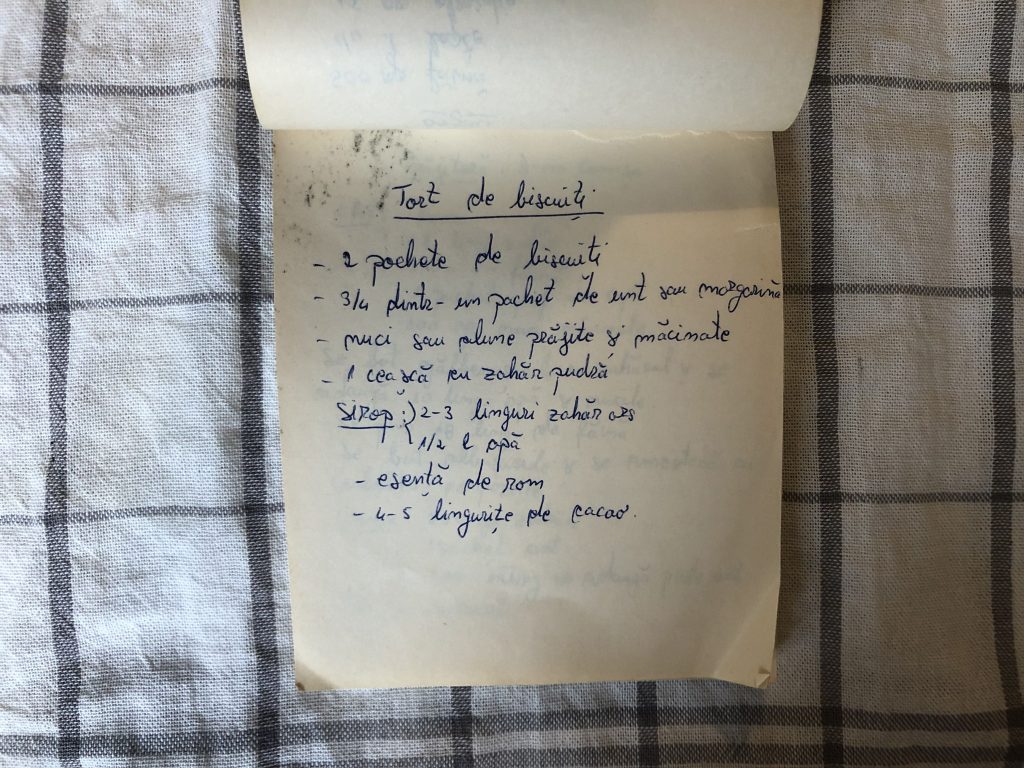 Tort de biscuiți
- 2 pachete de biscuiti
- 3/4 dintr-un pachet de unt sau margarină
- nuci sau alune prăjite și măcinate
- 1 ceașcă cu zahăr pudră
Sirop: 2-3 linguri zahăr ars
1/2 l apă
- esență de rom
- 4-5 lingurițe de cacao.